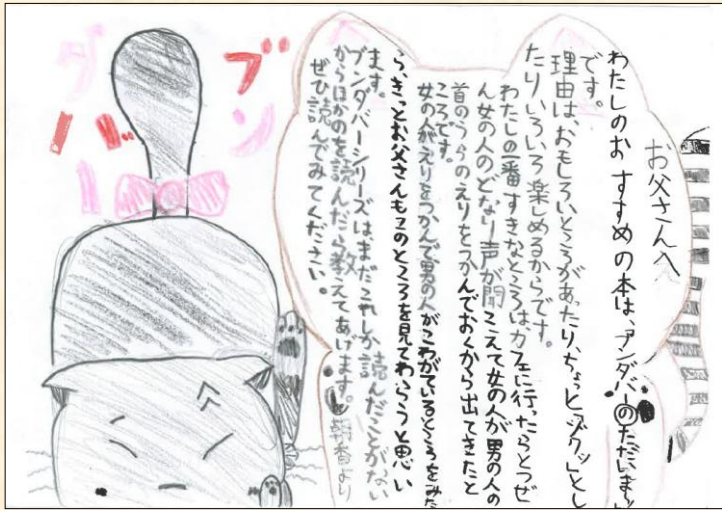 お父さんへ
わたしのおすすめの本は、ブンダバーのただいまッ
です。
理由は、おもしろいところがあったり、ちょっと「ゾクッ」とし
たりいろいろ楽しめるからです。
わたしの一番すきなところは、カフェに行ったらとつぜ
ん女の人のどなり声が聞こえて女の人が男の人の
首のうらのえりをつかんでおくから出てきたと
ころです。
女の人がえりをつかんで男の人がこわがているところをみた
ら、きっとお父さんもこのところを見てわらうと思い
ます。
ブンダバーシリーズはまだこれしか読んだことがない
からほかのを読んだら教えてあげます。
ぜひ読んでみてください。
香より
ブンダバー